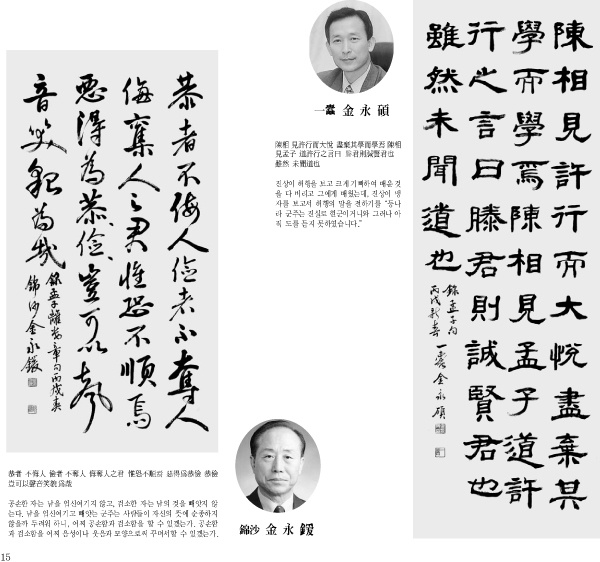 恭者不侮人儉者不奪人
侮奪人之君惟恐不順焉
惡得為恭、儉、豈可以聲
音笑貌為哉
錄孟子離婁章句丙戌春
錦沙金永鑁
一蠹 金永碩
陳相 見許行而大悅 盡棄其學而學焉 陳相
見孟子 道許行之言曰 滕君則誠賢君也
雖然 未聞道也
진상이 허행을 보고 크게 기뻐하여 배운 것
을 다 버리고 그에게 배웠는데, 진상이 맹
자를 보고서 허행의 말을 전하기를 “등나
라 군주는 진실로 현군이거니와 그러나 아
직 도를 듣지 못하였습니다.”
陳相見許行而大悅盡棄其
學而學焉陳相見孟子道許
行之言曰滕君則誠賢君也
雖然未聞道也
錄孟子句
丙戌新春 一蠹 金永碩
恭者 不侮人 儉者 不奪人 侮奪人之君 惟恐不順焉 惡得爲恭儉 恭儉
豈可以聲音笑貌 爲哉
공손한 자는 남을 업신여기지 않고, 검소한 자는 남의 것을 빼앗지 않
는다. 남을 업신여기고 빼앗는 군주는 사람들이 자신의 뜻에 순종하지
않을까 두려워 하니, 어찌 공손함과 검소함을 할 수 있겠는가. 공손함
과 검소함을 어찌 음성이나 웃음과 모양으로써 꾸며서할 수 있겠는가.
錦沙 金永鑁
15